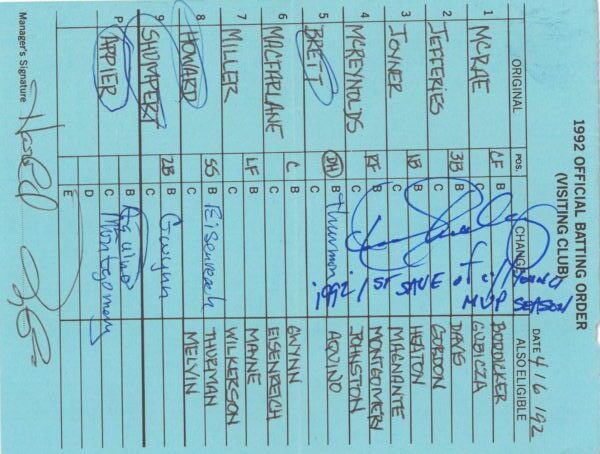 1992 OFFICIAL BATTING ORDER
(VISITING CLUB)
DATE 4/6/92
ORIGINAL POS. CHANGE ALSO ELIGIBLE
1 MCRAE CF B
C
2 JEFFERIES 3B B
C
3 JOYNER 1B B
C
4 MCREYNOLDS RF B
C
5 BRETT DH B Thurman
C
6 MACFARLANE C B
C
7 MILLER LF B
C
8 HOWARD SS B Eisenreich
C
9 SHUMPERT 2B B Gwynn
C
P APPIER B Aquino
C Montgomery
D
E
1992 1ST SAVE of cy young
MVP SEASON
BODDICKER
GUBICZA
DAVIS
GORDON
HEATON
MAGNANTE
MONTGOMERY
JOHNSTON
AQUINO
GWYNN
EISENREICH
MANNE
WILKERSON
THURMAN
MELVIN
Manager's Signature